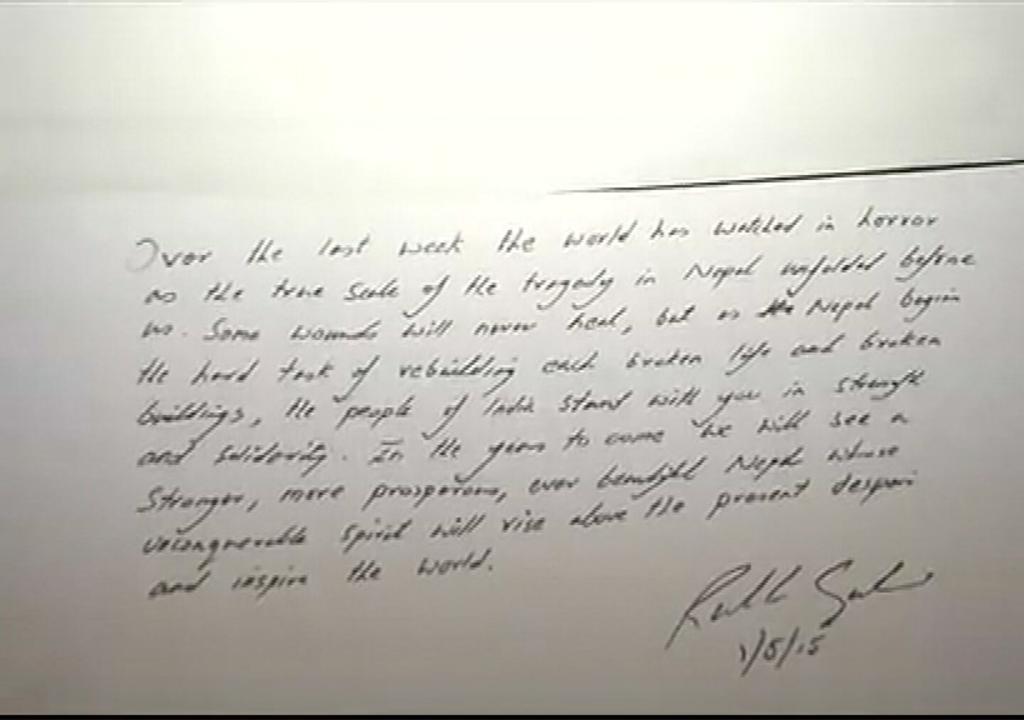 Over the last week the world has watched in horror
as the true scale of the tragedy in Nepal unfolded before
us. Some wounds will never heal, but as Nepal begin
the hard task of rebuilding each broken life and broken
buildings, the people of India stand with you in strength
and solidarity. In the years to come we will see a
Stronger, more prosperous, ever beautiful Nepal whose
unconquerable spirit will rise above the present despair
and inspire the world.
1/5/15